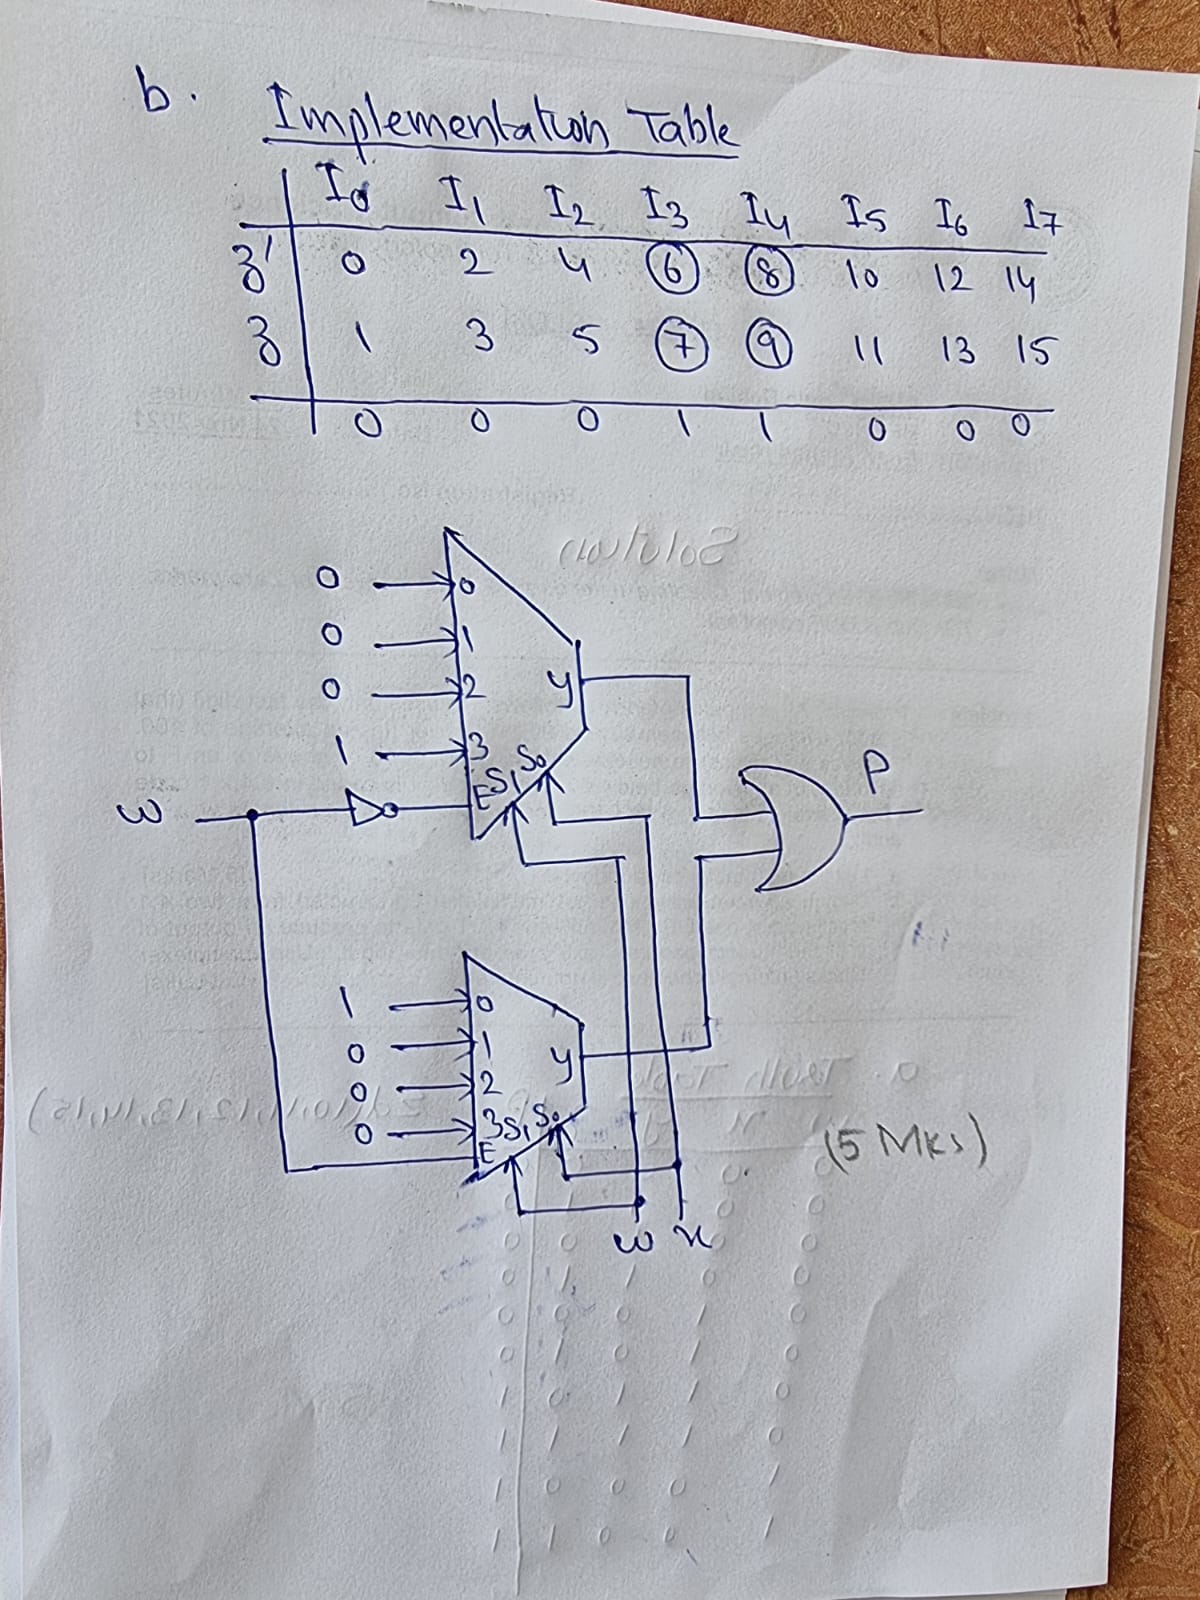 b. Implementation Table
I0 I1 I2 I3 I4 I5 I6 I7
z' 0 2 4 6 8 10 12 14
z 1 3 5 7 9 11 13 15
0 0 0 1 1 0 0 0
0 0
0 1
0 2 y
1 3 S0
S1 P
w E
1 0
0 1 y
0 2
0 3 S1 S0 (5 Mks)
E
w x